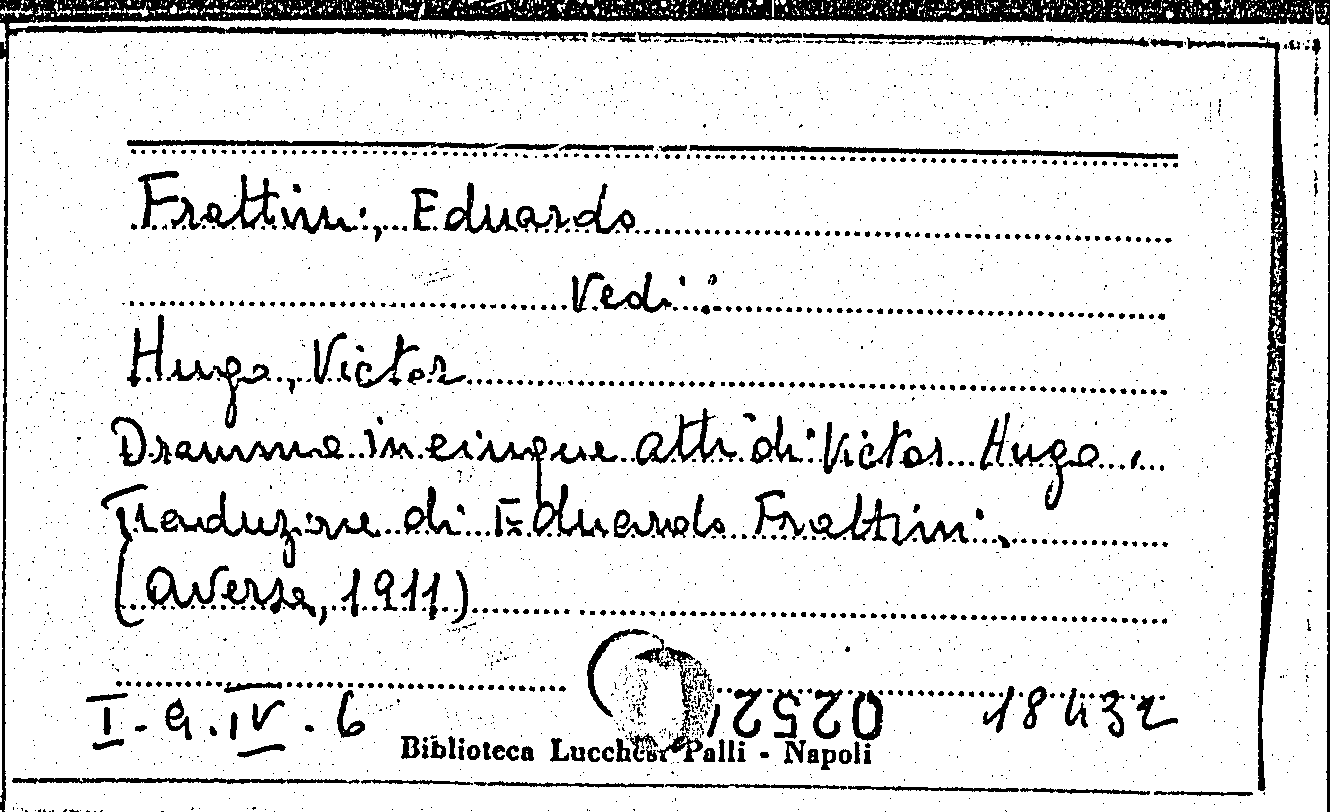 Frattini, Eduardo
Vedi:
Hugo, Victor
Dramma in cinque atti di Victor Hugo.
Traduzione di Eduardo Frattini.
(Aversa, 1911)
I-9.IV.6
0252 18432
Biblioteca Lucchesi Palli - Napoli